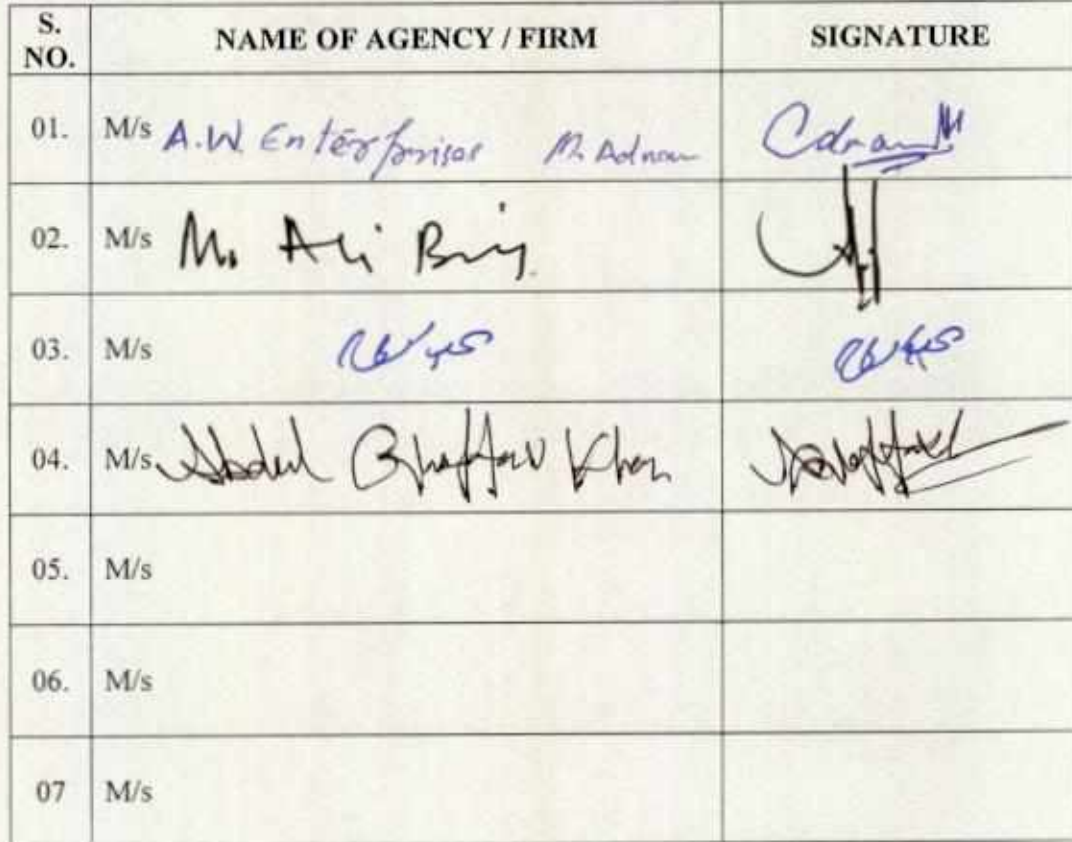 S. NO. NAME OF AGENCY / FIRM SIGNATURE
01. M/s A.W. Enterprises M. Adnan
02. M/s M. Ali
03. M/s
04. M/s Abdul Ghaffar Khan
05. M/s
06. M/s
07 M/s